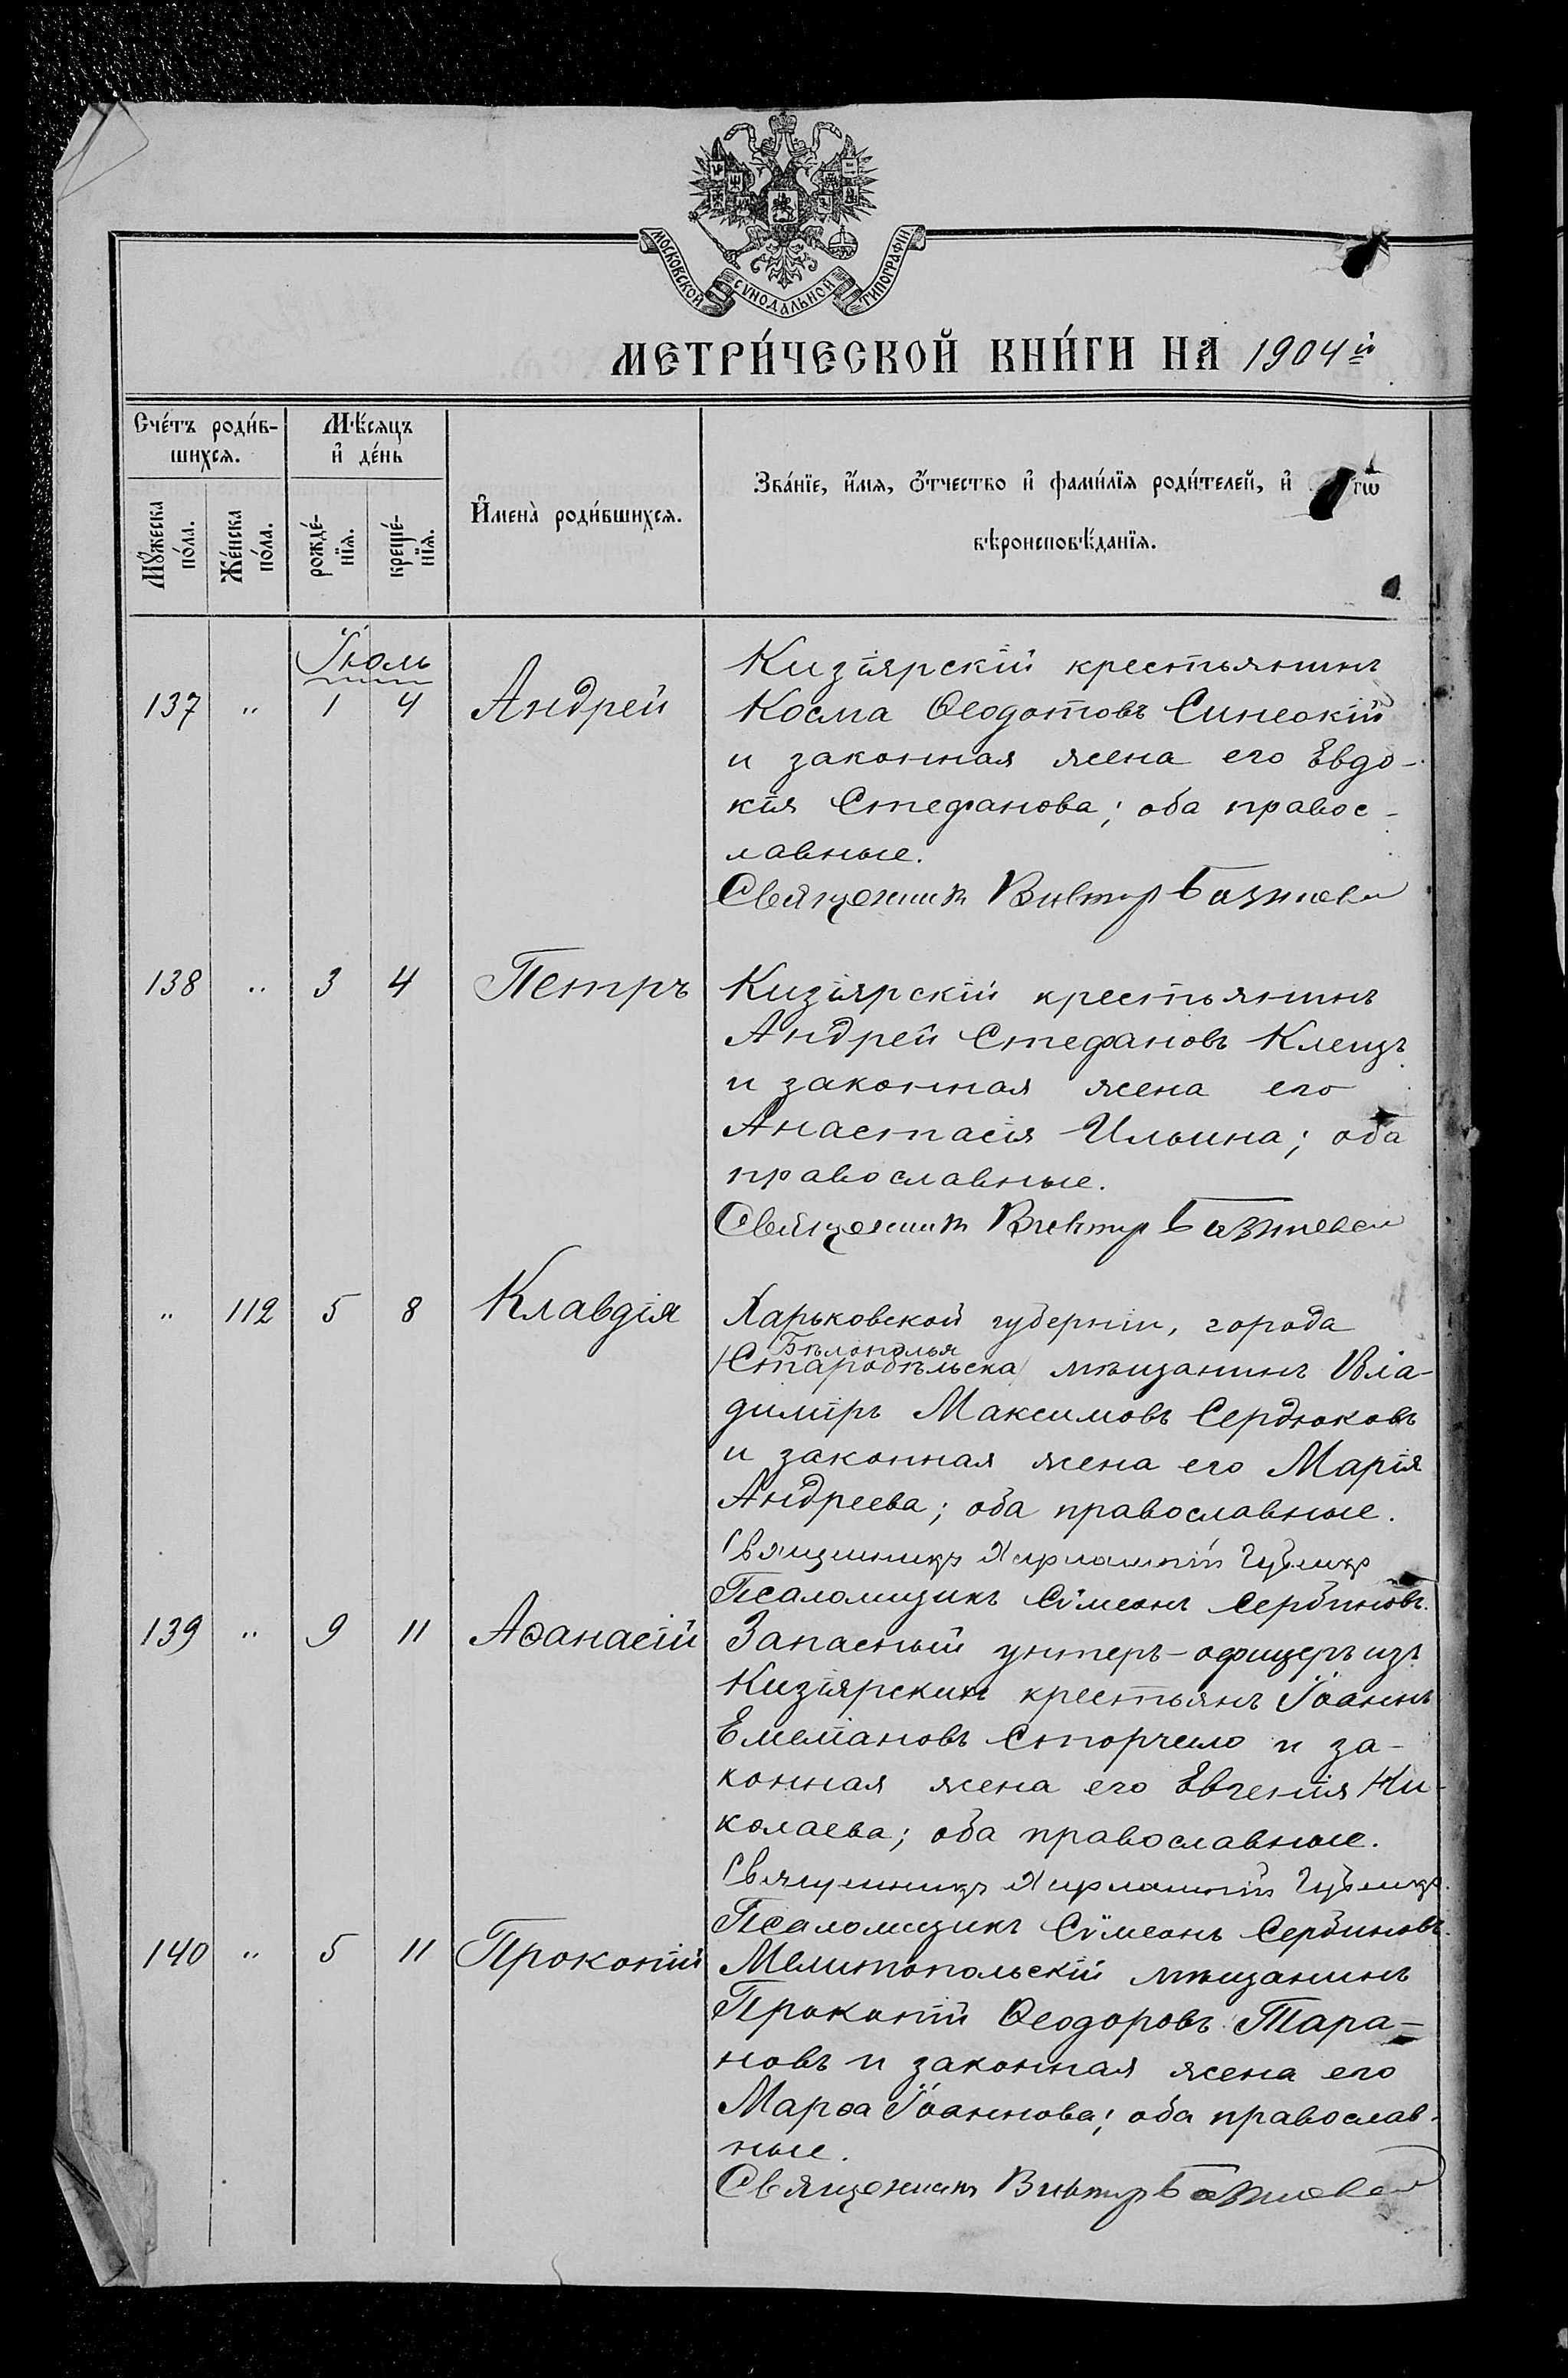 МОСКОВСКОЙ СѴНОДАЛЬНОЙ ТИПОГРАФІИ
МЕТРИ́ЧЕСКОЙ КНИ́ГИ НА 1904 й
Сче́тъ роди́в-
шихсѧ.
Мꙋ́жеска
по́ла.
Же́нска
по́ла.
Мѣ́сѧцъ
и҆ де́нь
рожде́-
нїѧ.
креще́-
нїѧ.
И҆мена̀ роди́вшихсѧ.
Зва́нїе, и҆́мѧ, ѻ҆́тчество и҆ фами́лїѧ роди́телей, и҆
вѣроисповѣ́данїѧ.
Іюль
137 " 1 4 Андрей
Кизіярскій крестьянинъ
Косма Ѳеодотовъ Синеокій
и законная жена его Евдо-
кія Стефанова; оба правос-
лавные.
Священникъ Викторъ
138 " 3 4 Петръ
Кизіярскій крестьянинъ
Андрей Стефановъ Клецъ
и законная жена его
Анастасія Ильина; оба
православные.
Священникъ Викторъ
" 112 5 8 Клавдія
Харьковской губерніи, города
Бѣлополья
/Старобѣльска/ мѣщанинъ Вла-
димиръ Максимовъ Сердюковъ
и законная жена его Марія
Андреева; оба православные.
Священникъ Харлампій
Псаломщикъ Сѵмеонъ Сербиновъ.
139 " 9 11 Аѳанасій
Запасный унтеръ-офицеръ изъ
Кизіярскихъ крестьянъ Іоаннъ
Емеліановъ Сторчело и за-
конная жена его Евгенія Ни-
колаева; оба православные.
Священникъ Харлампій
Псаломщикъ Сѵмеонъ Сербиновъ.
140 " 5 11 Прокопій
Мелитопольскій мѣщанинъ
Прокопій Ѳеодоровъ Тара-
новъ и законная жена его
Марѳа Іоаннова; оба православ-
ные.
Священникъ Викторъ